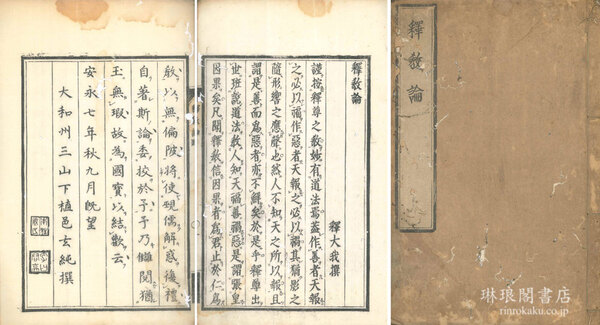 釋教論
釋教論
釋大我撰
謹按釋尊之教妙有道法焉蓋作善者天報
之必以福作惡者天報之必以禍其猶影之
隨形響之應聲也然人不知天之所以報且
謂是善而爲惡者亦不鮮矣於是乎釋尊出
世班說道法教人知天福善禍惡是謂張皇
因果矣凡聞釋教信因果者爲君止於仁爲
以無偏陂將使硯儒解惑後禮
自著斯論委校於予予乃閱猶
玉無瑕故為國寶以結歡云
安永七年秋九月既望
大和州三山下植邑玄純撰
琳琅閣書店
rinrokaku.co.jp